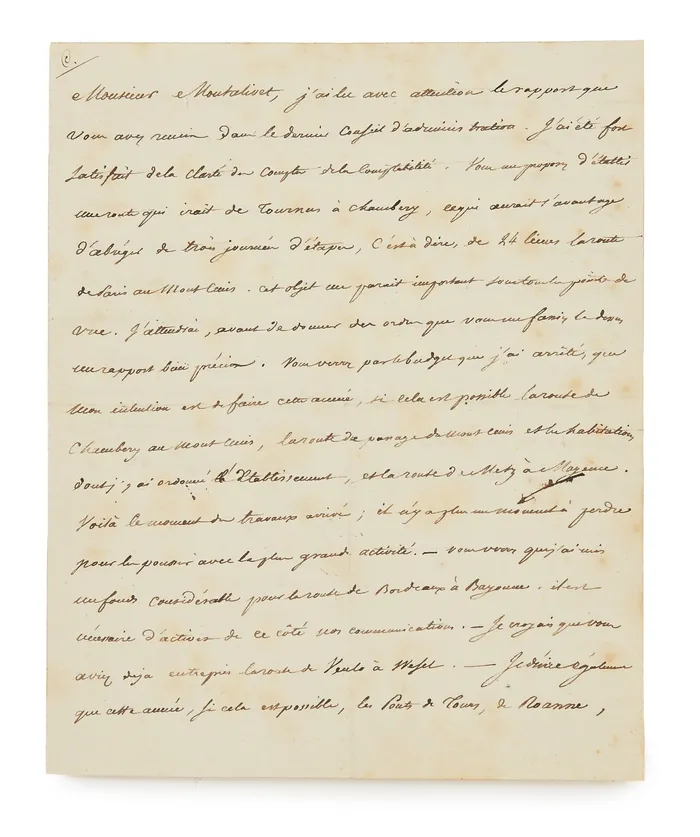 C.
Monsieur Montalivet, j'ai lu avec attention le rapport que
vous avez remis dans le dernier Conseil d'administration. J'ai été fort
satisfait de la clarté des Comptes de la Comptabilité. Vous me proposez d'établir
une route qui irait de Tournus à Chambery, ce qui aurait l'avantage
d'abréger de trois journées d'étapes, C'est à dire, de 24 lieues la route
de Paris au Mont Cenis. cet objet me parait important sous tous les points de
vue. J'attendrai, avant de donner des ordres que vous me fassiez là dessus
un rapport bien précis. Vous verrez par le budget que j'ai arrêté, que
mon intention est de faire cette année, si cela est possible la route de
Chambery au Mont Cenis, la route du passage du Mont Cenis et les habitations
dont j'y ai ordonné l'Etablissement, et la route de Metz à Mayence.
Voilà le moment des travaux arrivé ; il n'y a plus un moment à perdre
pour les pousser avec la plus grande activité. — vous verrez que j'ai mis
un fonds considérable pour la route de Bordeaux à Bayonne. il est
nécessaire d'activer de ce côté nos communications. — Je croyais que vous
aviez deja entrepris la route de Venlo à Wesel. — Je désire également
que cette année, si cela est possible, les Ponts de Tours, de Roanne,